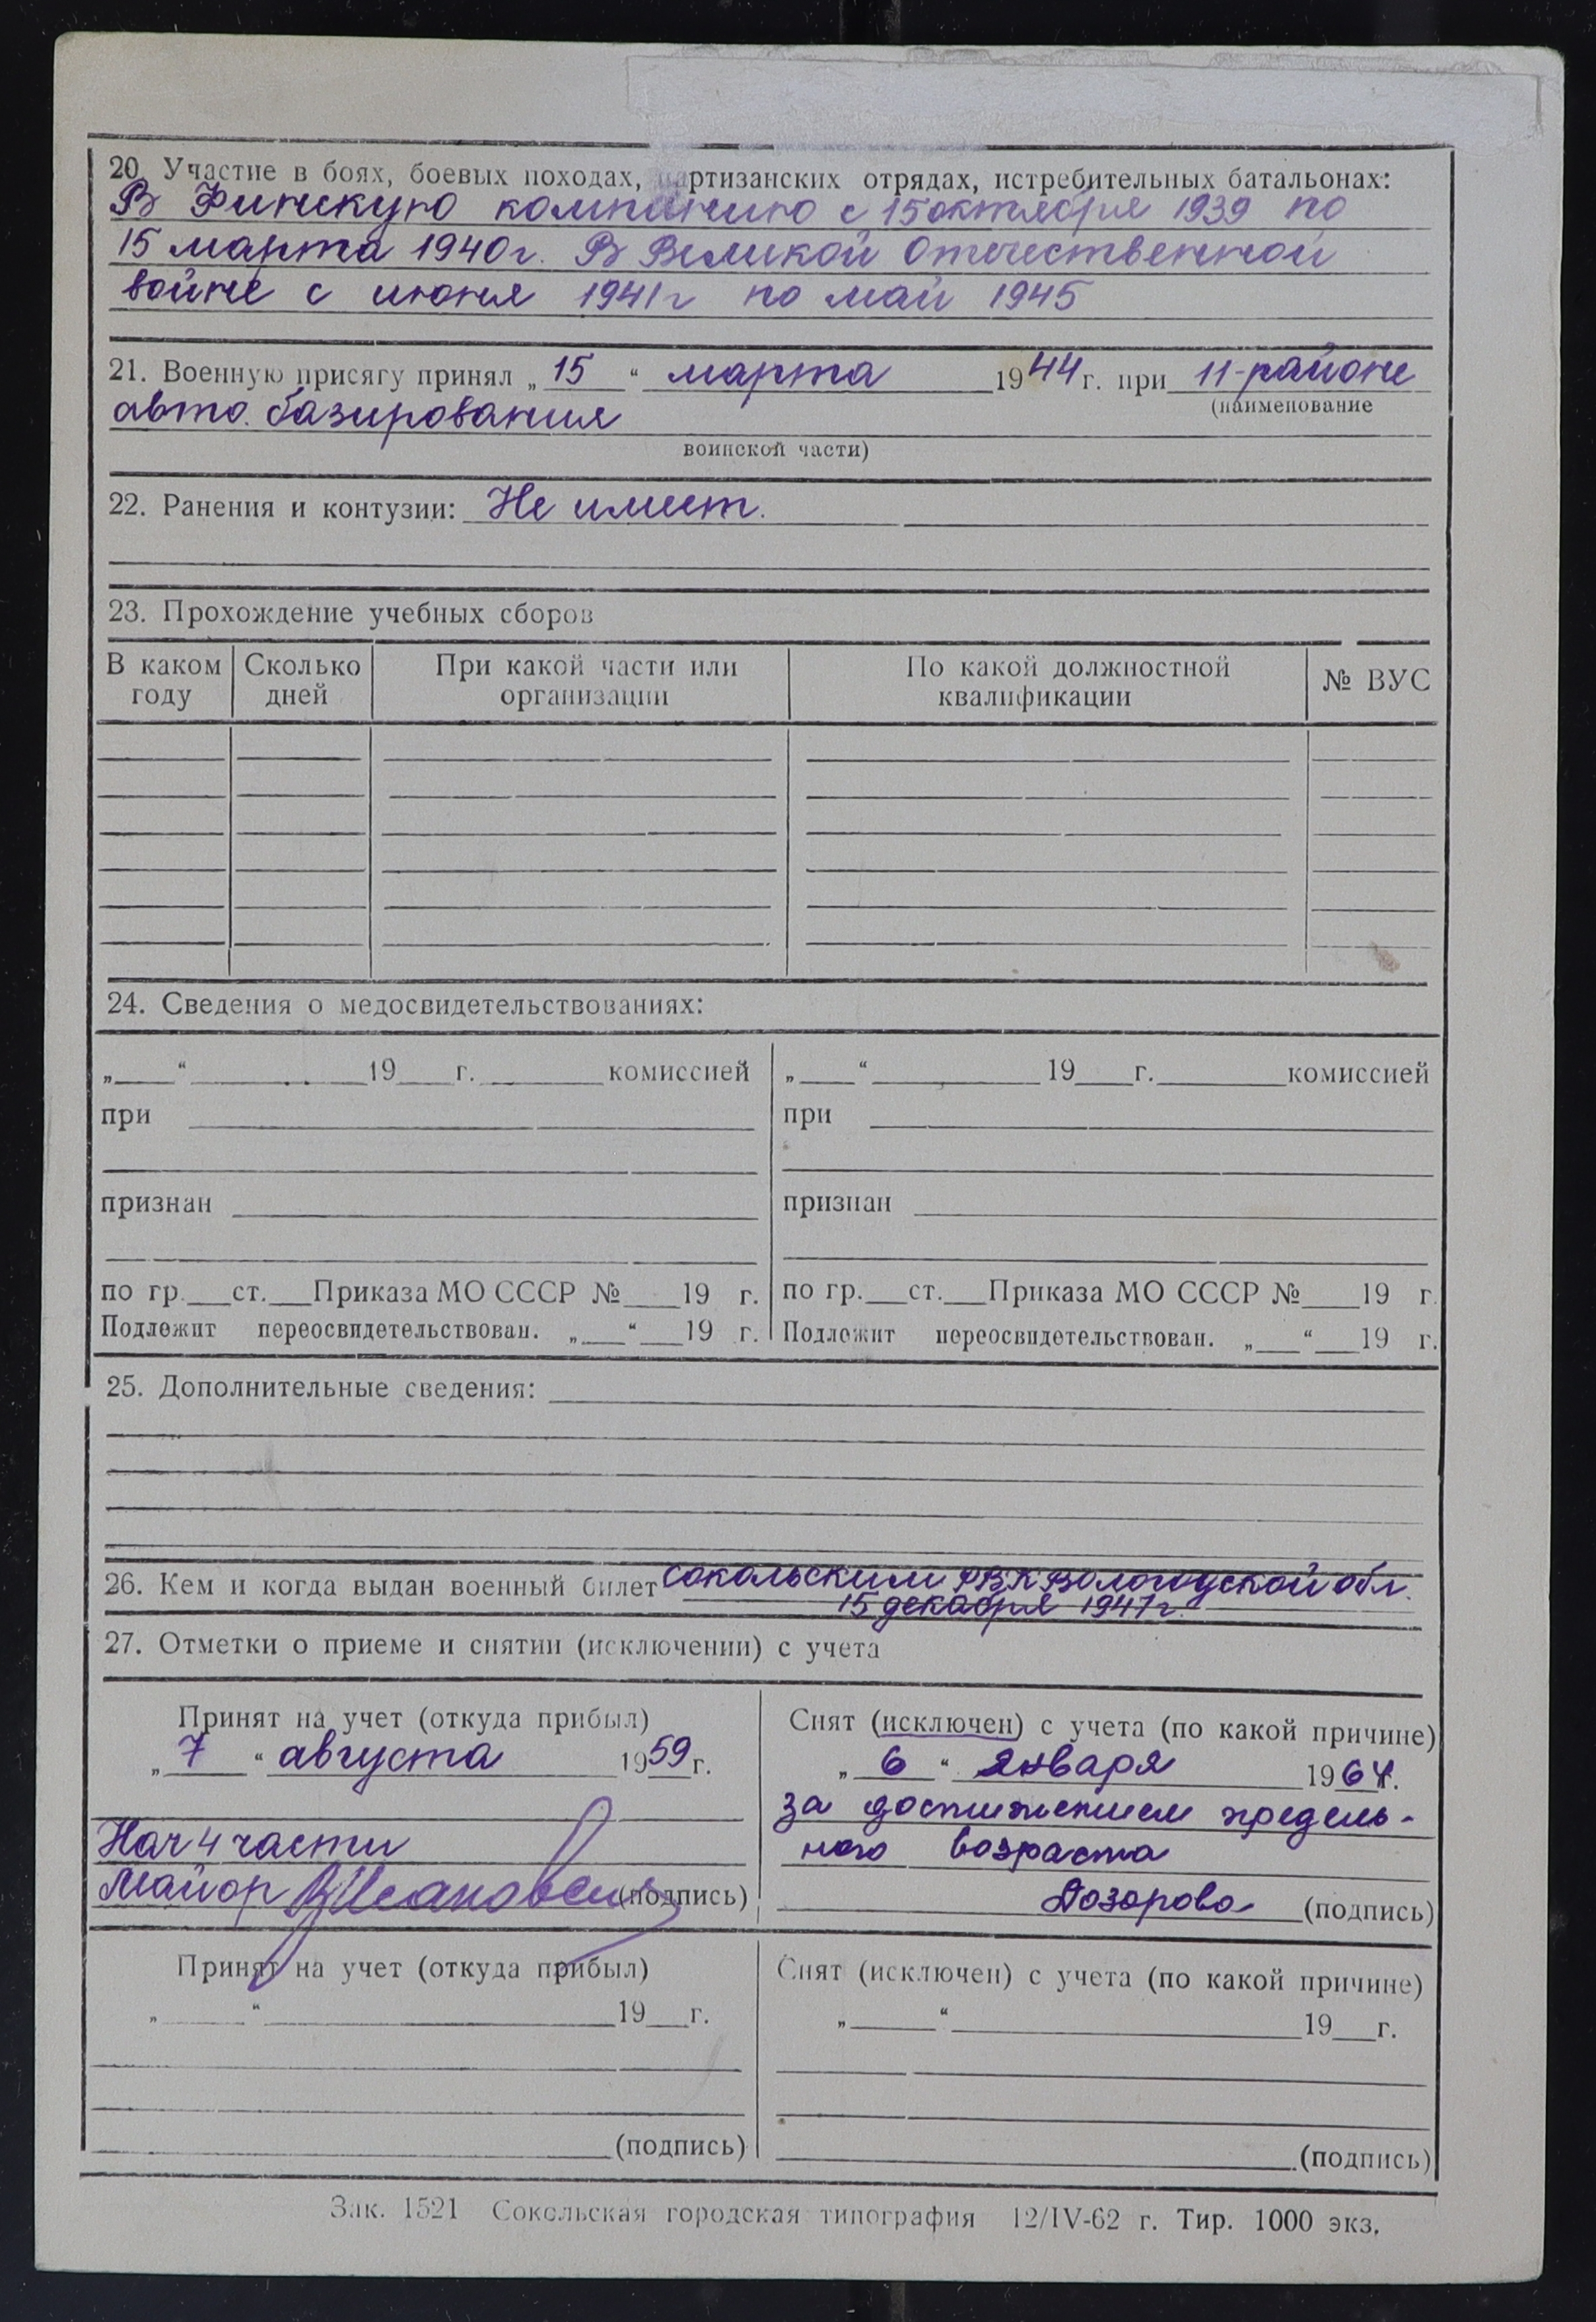 20. Участие в боях, боевых походах, партизанских отрядах, истребительных батальонах:
В Финскую компанию с 15 октября 1939 по
15 марта 1940г. В Великой Отечественной
войне с июня 1941г по май 1945
21. Военную присягу принял „ 15 “ марта 1944 г. при 11-районе
(наименование
авто. базирования
воинской части)
22. Ранения и контузии: Не имеет.
23. Прохождение учебных сборов
В каком году | Сколько дней | При какой части или организации | По какой должностной квалификации | № ВУС
24. Сведения о медосвидетельствованиях:
„___“ ___ 19___г. ___ комиссией | „___“ ___ 19___г. ___ комиссией
при | при
признан | признан
по гр.___ст.___Приказа МО СССР №___19 г. | по гр.___ст.___Приказа МО СССР №___19 г.
Подлежит переосвидетельствован. „___“___19 г. | Подлежит переосвидетельствован. „___“___19 г.
25. Дополнительные сведения:
26. Кем и когда выдан военный билет Сокольским РВК Вологодской обл.
15 декабря 1947г.
27. Отметки о приеме и снятии (исключении) с учета
Принят на учет (откуда прибыл)
„ 7 “ августа 1959 г.
Нач 4 части
Майор (подпись)
Снят (исключен) с учета (по какой причине)
„ 6 “ января 1964 г.
за достижением предель-
ного возраста
Дозорова (подпись)
Принят на учет (откуда прибыл)
„___“ ___ 19___г.
(подпись)
Снят (исключен) с учета (по какой причине)
„___“ ___ 19___г.
(подпись)
Зак. 1521 Сокольская городская типография 12/IV-62 г. Тир. 1000 экз.